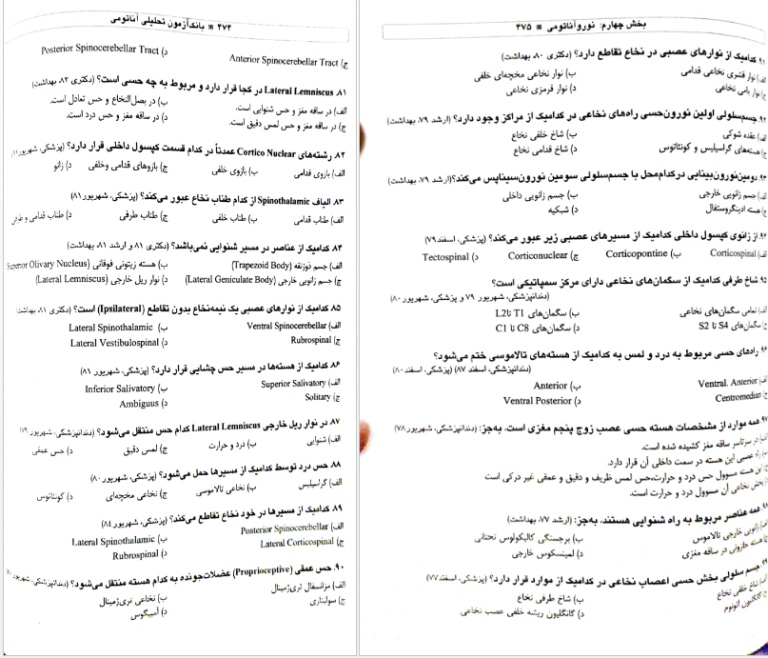 ۲۷۴ * بانک آزمون تحلیلی آناتومی
د) Posterior Spinocerebellar Tract
ج) Anterior Spinocerebellar Tract
۸۱. Lateral Lemniscus در کجا قرار دارد و مربوط به چه حسی است؟ (دکتری ۸۲، بهداشت)
الف) در ساقه مغز و حس شنوایی است. ب) در بصل‌النخاع و حس تعادل است.
ج) در ساقه مغز و حس لمس دقیق است. د) در ساقه مغز و حس درد است.
۸۲. رشته‌های Cortico Nuclear عمدتاً در کدام قسمت کپسول داخلی قرار دارد؟ (پزشکی، شهریور
الف) بازوی قدامی ب) بازوی خلفی ج) بازوهای قدامی وخلفی د) زانو
۸۳. الیاف Spinothalamic از کدام طناب نخاع عبور می‌کند؟ (پزشکی، شهریور ۸۱)
الف) طناب قدامی ب) طناب خلفی ج) طناب طرفی د) طناب قدامی و طرفی
۸۴. کدامیک از عناصر در مسیر شنوایی نمی‌باشد؟ (دکتری ۸۱ و ارشد ۸۱، بهداشت)
الف) جسم ذوزنقه (Trapezoid Body) ب) هسته زیتونی فوقانی (Superior Olivary Nucleus)
ج) جسم زانویی خارجی (Lateral Geniculate Body) د) نوار ریل خارجی (Lateral Lemniscus)
۸۵. کدامیک از نوارهای عصبی یک نیمه‌نخاع بدون تقاطع (Ipsilateral) است؟ (دکتری ۸۱، بهداشت)
الف) Ventral Spinocerebellar ب) Lateral Spinothalamic
ج) Rubrospinal د) Lateral Vestibulospinal
۸۶. کدامیک از هسته‌ها در مسیر حس چشایی قرار دارد؟ (پزشکی، شهریور ۸۱)
الف) Superior Salivatory ب) Inferior Salivatory
ج) Solitary د) Ambiguus
۸۷. در نوار ریل خارجی Lateral Lemniscus کدام حس منتقل می‌شود؟ (دندانپزشکی، شهریور ۷۹)
الف) شنوایی ب) درد و حرارت ج) لمس دقیق د) حس عمقی
۸۸. حس درد توسط کدامیک از مسیرها حمل می‌شود؟ (پزشکی، شهریور ۸۰)
الف) گراسیلیس ب) نخاعی تالاموسی ج) نخاعی مخچه‌ای د) کونئاتوس
۸۹. کدامیک از مسیرها در خود نخاع تقاطع می‌کند؟ (پزشکی، شهریور ۸۴)
الف) Posterior Spinocerebellar ب) Lateral Spinothalamic
ج) Lateral Corticospinal د) Rubrospinal
۹۰. حس عمقی (Proprioceptive) عضلات‌جونده به کدام هسته منتقل می‌شود؟ (دندانپزشکی،
الف) مزانسفال تری‌ژمینال ب) نخاعی تری‌ژمینال
ج) سولیتاری د) آمبیگوس
بخش چهارم: نوروآناتومی * ۲۷۵
۹۱. کدامیک از نوارهای عصبی در نخاع تقاطع دارد؟ (دکتری ۸۰، بهداشت)
الف) نوار قشری نخاعی قدامی ب) نوار نخاعی مخچه‌ای خلفی
ج) نوار بامی نخاعی د) نوار قرمزی نخاعی
۹۲. جسم‌سلولی اولین نورون‌حسی راه‌های نخاعی در کدامیک از مراکز وجود دارد؟ (ارشد ۷۹، بهداشت)
الف) عقده شوکی ب) شاخ خلفی نخاع
ج) هسته‌های گراسیلیس و کونئاتوس د) شاخ قدامی نخاع
۹۳. دومین‌نورون‌بینایی درکدام‌محل با جسم‌سلولی سومین نورون‌سیناپس می‌کند؟ (ارشد ۷۹، بهداشت)
الف) جسم زانویی خارجی ب) جسم زانویی داخلی
ج) هسته ادینگروستفال د) شبکیه
۹۴. از زانوی کپسول داخلی کدامیک از مسیرهای عصبی زیر عبور می‌کند؟ (پزشکی، اسفند ۷۹)
الف) Corticospinal ب) Corticopontine ج) Corticonuclear د) Tectospinal
۹۵. شاخ طرفی کدامیک از سگمان‌های نخاعی دارای مرکز سمپاتیکی است؟
(دندانپزشکی، شهریور ۷۹ و پزشکی، شهریور ۸۰)
الف) تمامی سگمان‌های نخاعی ب) سگمان‌های T1 تا L2
ج) سگمان‌های S4 تا S2 د) سگمان‌های C8 تا C1
۹۶. راه‌های حسی مربوط به درد و لمس به کدامیک از هسته‌های تالاموسی ختم می‌شود؟
(دندانپزشکی، اسفند ۸۷) (پزشکی، اسفند ۸۰)
الف) Ventral. Anterior ب) Anterior
ج) Centromedian د) Ventral Posterior
۹۷. همه موارد از مشخصات هسته حسی عصب زوج پنجم مغزی است، به‌جز: (دندانپزشکی، شهریور ۷۸)
الف) در سرتاسر ساقه مغز کشیده شده است.
ب) راه عصبی این هسته در سمت داخلی آن قرار دارد.
ج) این هسته مسوول حس درد و حرارت،حس لمس ظریف و دقیق و عمقی غیر درکی است
د) بخش نخاعی آن مسوول درد و حرارت است.
۹۸. همه عناصر مربوط به راه شنوایی هستند، به‌جز: (ارشد ۷۷، بهداشت)
الف) زانویی خارجی تالاموس ب) برجستگی کالیکولوس تحتانی
ج) هسته حلزونی در ساقه مغزی د) لمنیسکوس خارجی
جسم سلولی بخش حسی اعصاب نخاعی در کدامیک از موارد قرار دارد؟ (پزشکی، اسفند ۷۷)
الف) شاخ خلفی نخاع ب) شاخ طرفی نخاع
ج) گانگلیون اتونوم د) گانگلیون ریشه خلفی عصب نخاعی